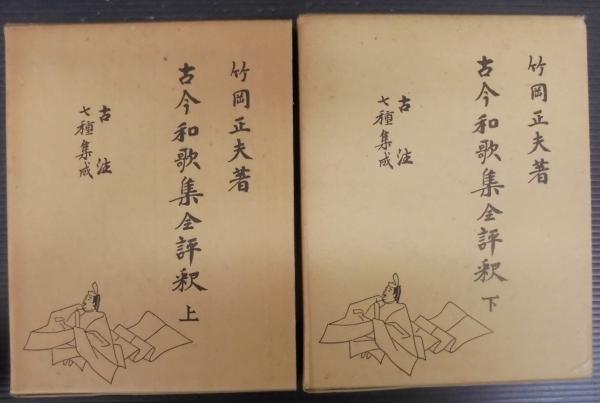 竹岡正夫著
古今和歌集全評釈 上
古注
七種集成
竹岡正夫著
古今和歌集全評釈 下
古注
七種集成